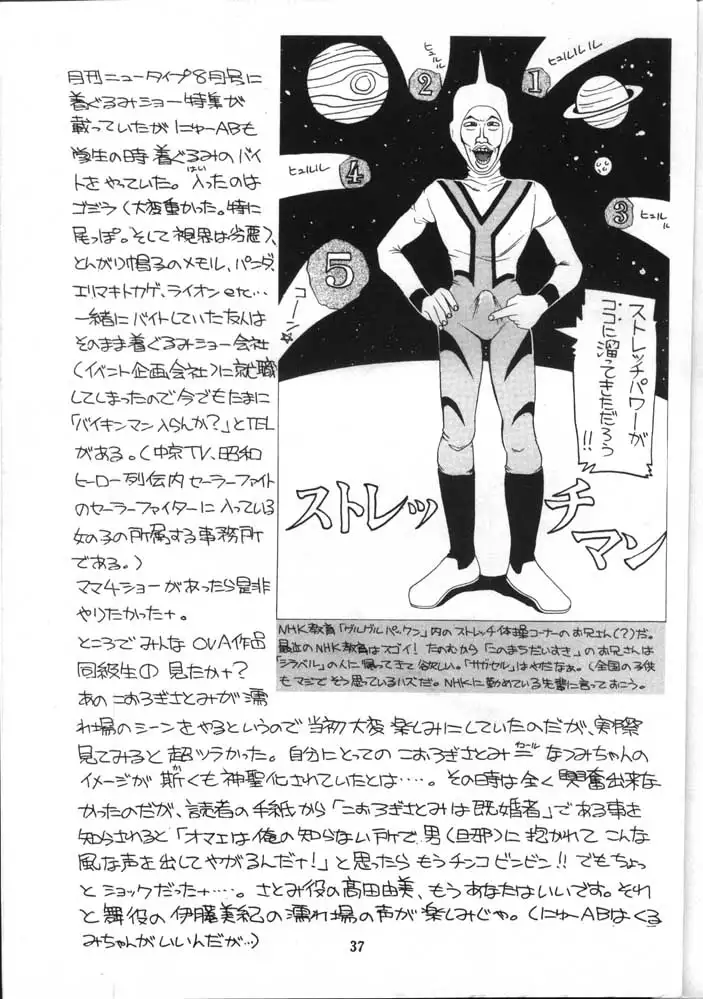 月刊ニュータイプ8月号に
着ぐるみショー特集が
載っていたがにゅーABも
学生の時着ぐるみのバイ
トをやっていた。入ったのは
はい
ゴジラ(大変重かった。特に
尾っぽ。そして視界は劣悪)、
とんがり帽子のメモル、パンダ、
エリマキトカゲ、ライオンetc…
一緒にバイトしていた友人は
そのまま着ぐるみショー会社
(イベント企画会社)に就職
してしまったので今でもたまに
「バイキンマン入らんか?」とTEL
がある。(中京TV、昭和
ヒーロー列伝内セーラーファイト
のセーラーファイターに入っている
女の子の所属する事務所
である。)
ママ4ショーがあったら是非
やりたかったナ。
ところでみんなOVA作品
同級生①見たかナ?
あのこおろぎさとみが濡
れ場のシーンをやるというので当初大変楽しみにしていたのだが、実際
見てみると超ツラかった。自分にとってのこおろぎさとみ=なつみちゃんの
イコール
イメージが斯くも神聖化されていたとは…。その時は全く興奮出来な
か
かったのだが、読者の手紙から「こおろぎさとみは既婚者」である事を
知らされると「オマエは俺の知らない所で男(旦那)に抱かれてこんな
風な声を出してやがるんだナ!」と思ったらもうチンコビンビン!!でもちょっ
とショックだったナ…。さとみ役の高田由美、もうあなたはいいです。それ
と舞役の伊藤美紀の濡れ場の声が楽しみじゃ。(にゅーABはくる
みちゃんがいいんだが…)
ヒュルル
2
ヒュルルル
1
ヒュルルル
4
3
ヒュルル
5
コーン
ストレッチパワーが
ココに溜ってきただろう
!!
ストレッチマン
NHK教育「グルグルパックン」内のストレッチ体操コーナーのお兄さん(?)だ。
最近のNHK教育はスゴイ!たのむから「このまちだいすき」のお兄さんは
「シラベル」の人に帰ってきて欲しい。「サガセル」はやだなあ。(全国の子供
もマジでそう思っているハズだ。NHKに勤めている先輩に言っておこう。
37